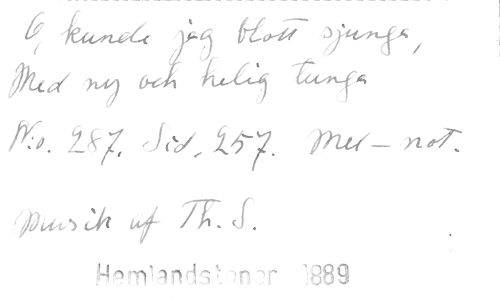 O, kunde jag blott sjunga,
Med ny och helig tunga
N:o. 287. Sid. 257. Mel – not.
Musik af Th. S.
Hemlandstoner 1889